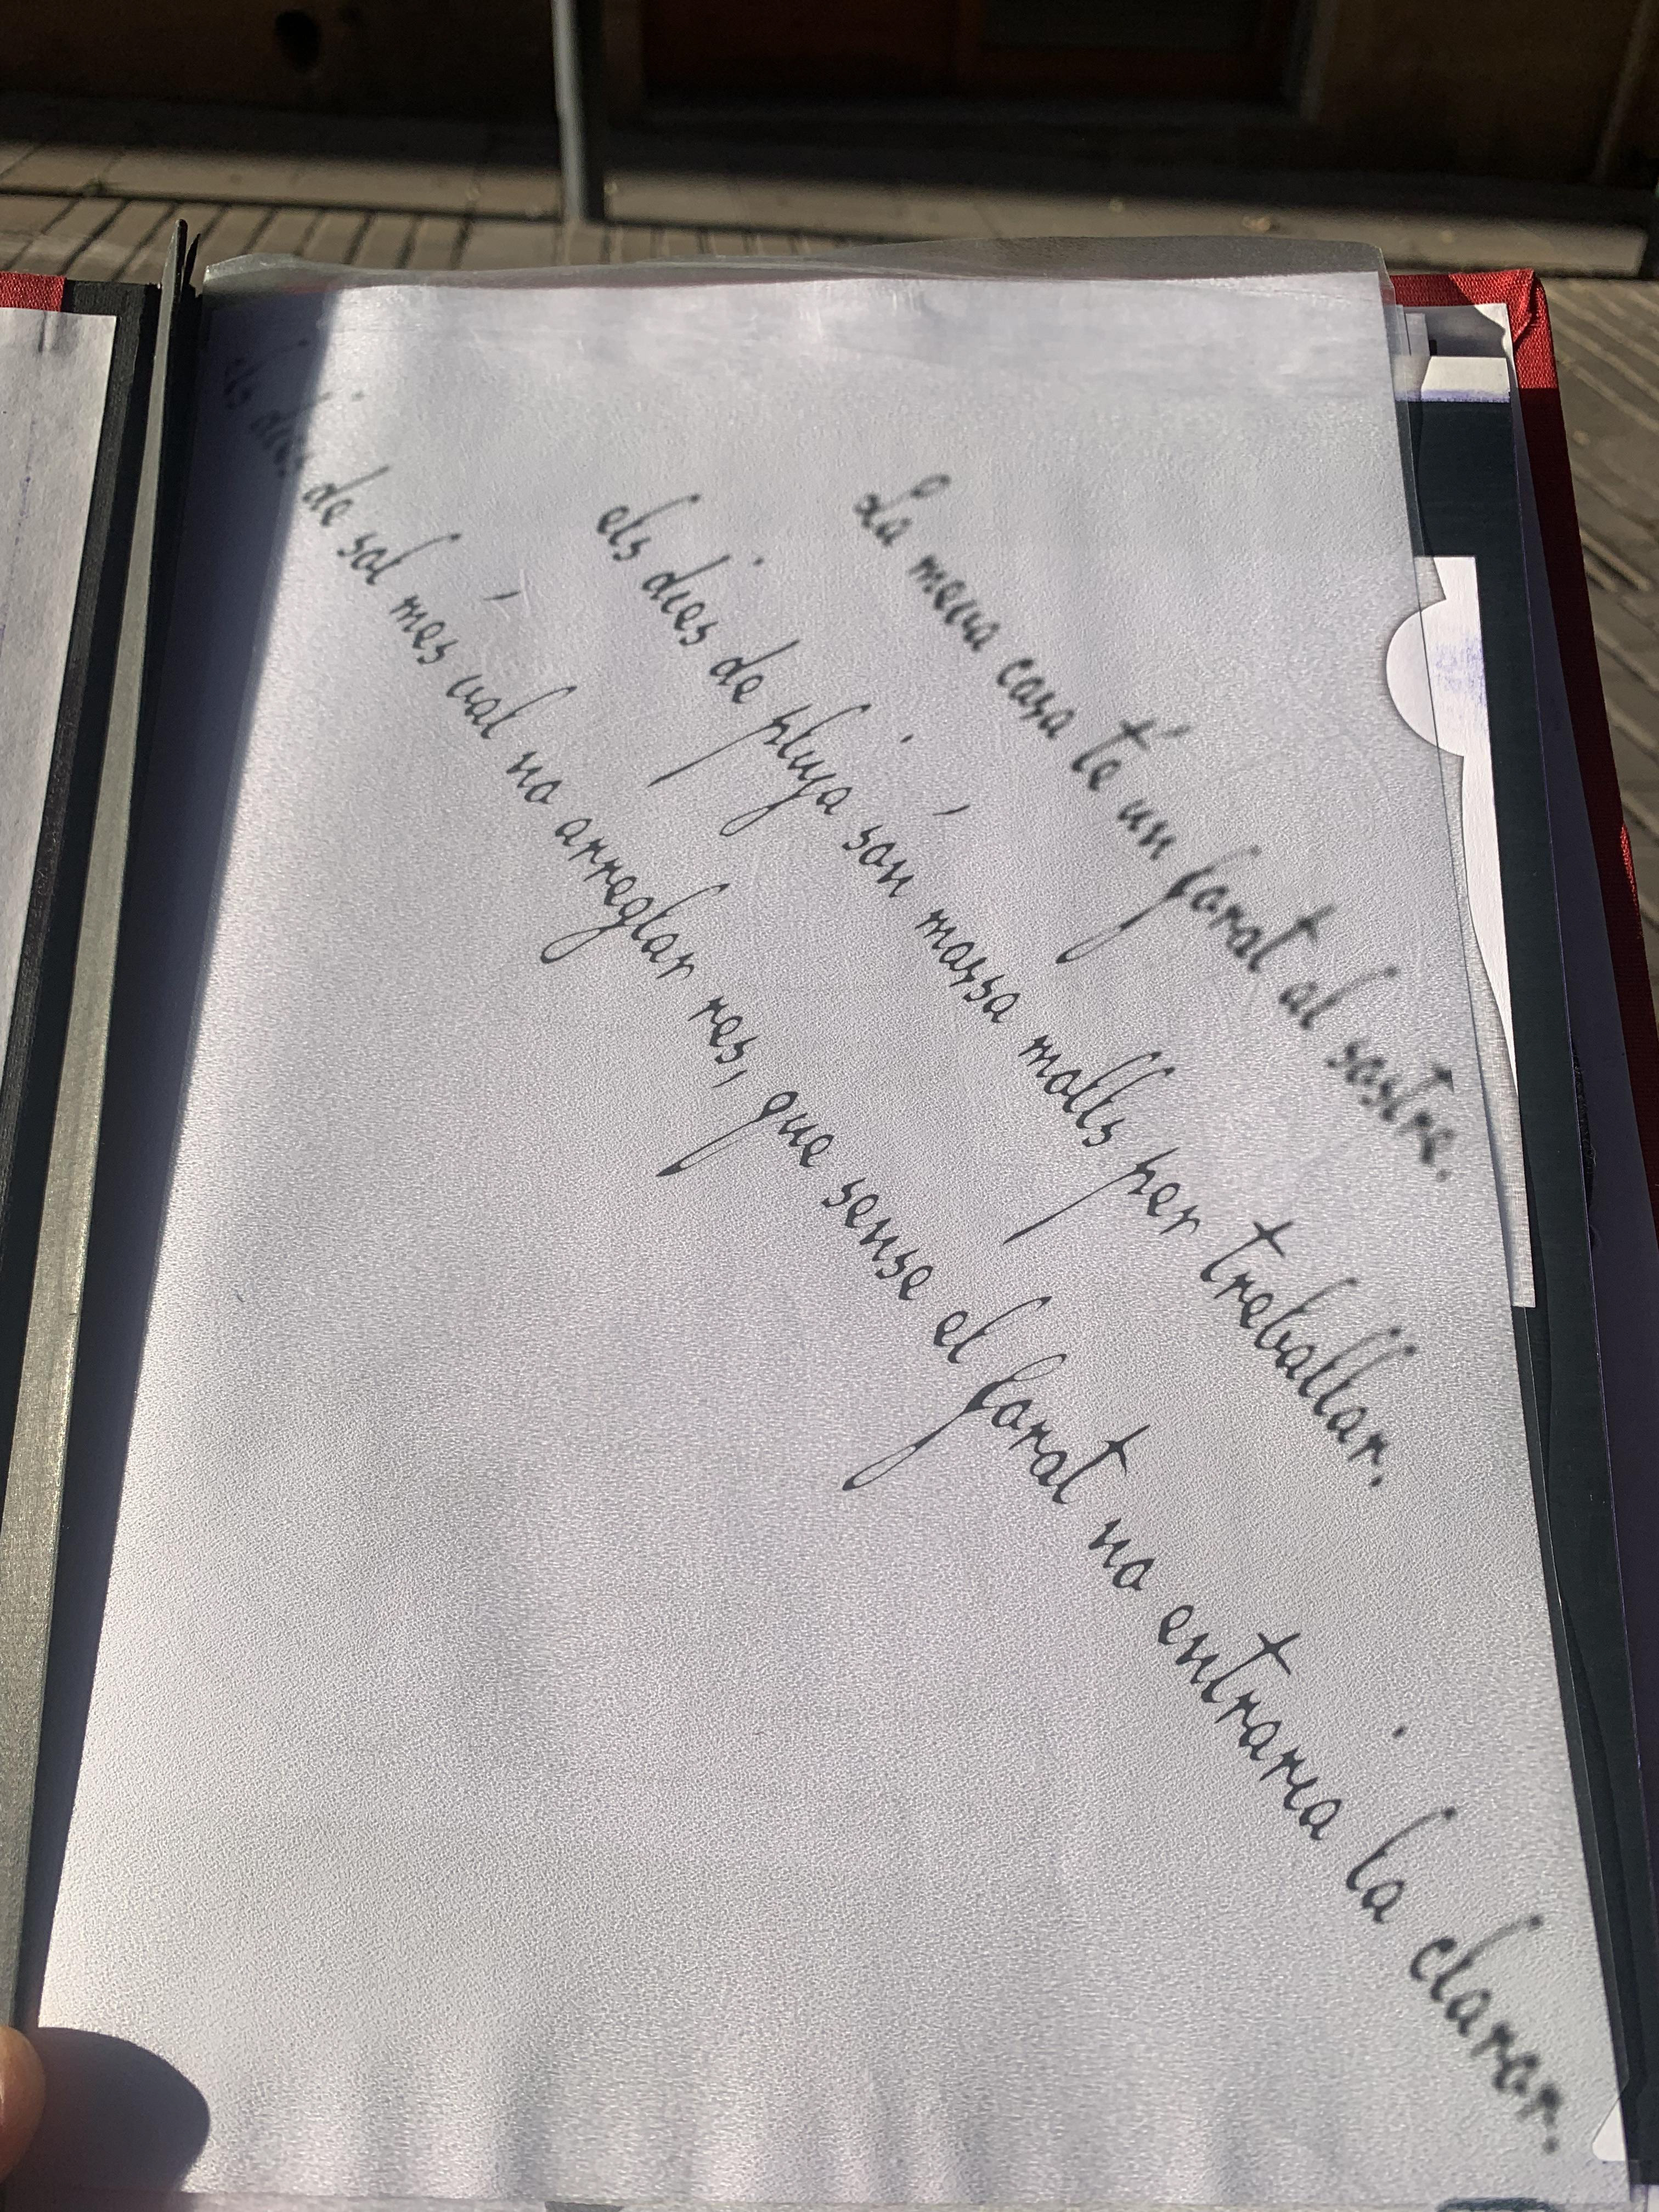 La meva casa té un forat al sostre.
els dies de pluja són massa molls per treballar.
els dies de sol més val no arreglar res, que sense el forat no entraria la claror.